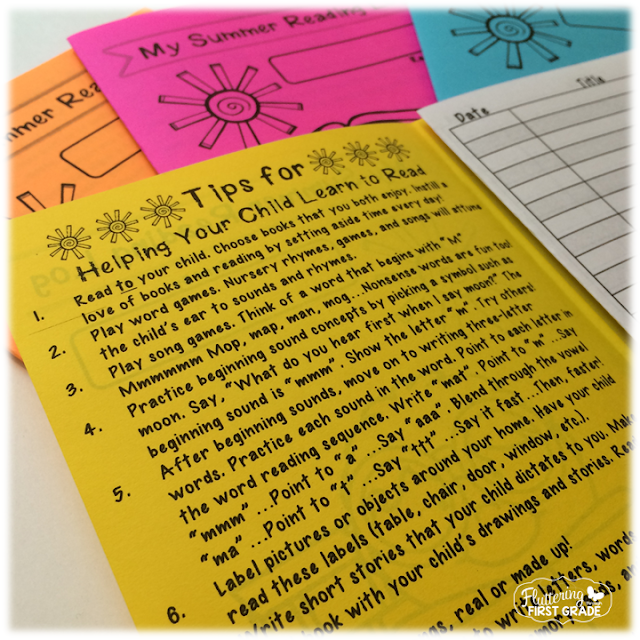 My Summer Reading
Summer Rea
Date Title
Tips for
Helping Your Child Learn to Read
1. Read to your child. Choose books that you both enjoy. Instill a
love of books and reading by setting aside time every day!
2. Play word games. Nursery rhymes, games, and songs will attune
the child's ear to sounds and rhymes.
3. Play song games. Think of a word that begins with "M"
Mmmmmm Mop, map, man, mog...Nonsense words are fun too!
4. Practice beginning sound concepts by picking a symbol such as
moon. Say, "What do you hear first when I say moon?" The
beginning sound is "mmm". Show the letter "m". Try others!
5. After beginning sounds, move on to writing three-letter
words. Practice each sound in the word. Point to each letter in
the word reading sequence. Write "mat". Point to "m"...Say
"mmm" ...Point to "a" ...Say "aaa". Blend through the vowel
"ma" ...Point to "t" ...Say "ttt" ...Say it fast...Then, faster!
6. Label pictures or objects around your home. Have your child
read these labels (table, chair, door, window, etc.).
Write short stories that your child dictates to you. Make
book with your child's drawings and stories. Read
real or made up!
letters, words,
Fluttering
FIRST GRADE